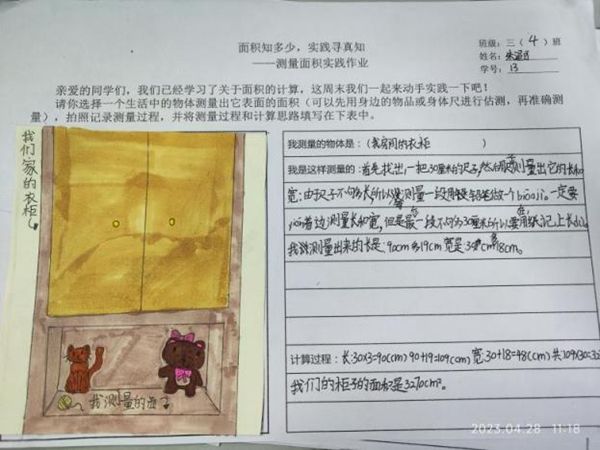 面积知多少，实践寻真知
——测量面积实践作业
班级：三（4）班
姓名：
学号：13
亲爱的同学们，我们已经学习了关于面积的计算，这周末我们一起来动手实践一下吧！
请你选择一个生活中的物体测量出它表面的面积（可以先用身边的物品或身体尺进行估测，再准确测
量），拍照记录测量过程，并将测量过程和计算思路填写在下表中。
我们家的衣柜
我测量的面子
我测量的物体是：（我房间的衣柜）
我是这样测量的：首先找出一把30厘米的尺子，然后测量出它的长和
宽；由于尺子不够长，所以测量一段用铅笔做一个biāojì。一定要
沿着边测量长和宽，但是最一段不够30厘米所以要用纸记上长
我测量出来的长是90cm多19cm宽是30cm18cm。
计算过程：长：30×3=90(cm) 90+19=109(cm) 宽：30+18=48(cm) 共109×30=32
我们的柜子的面积是3270cm²。
2023.04.28 11:18